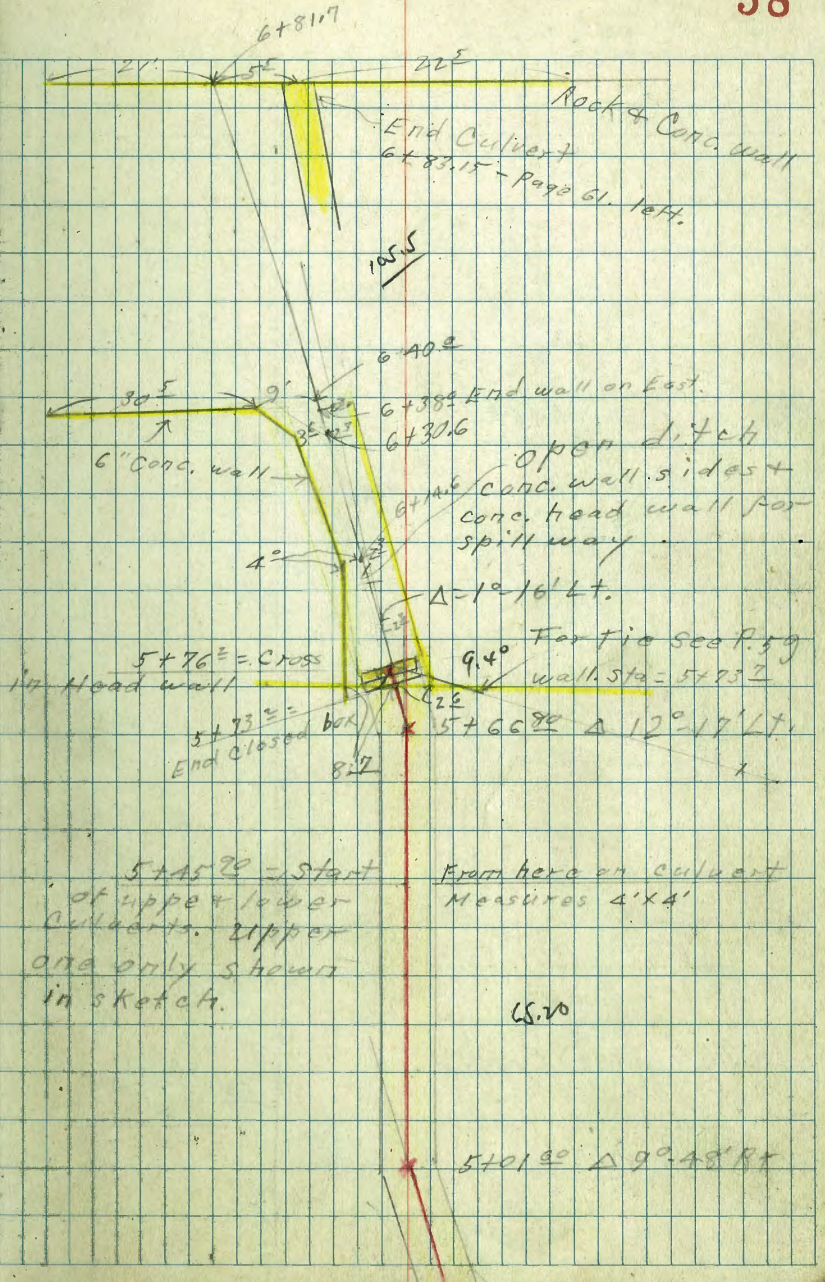 58
6+81.7
21' 5⁵ 22⁵
Rock & Conc. wall
End Culvert
6+83.15 - Page 61. left.
105.5
6+40.0
30⁵ 9'
6+38⁰ End wall on East.
6+30.6
6" Conc. wall
open ditch
conc. wall sides &
conc. head wall for
spill way.
6+14.6
4⁰
Δ=1°-16' Lt.
For Tie See P.59
wall. Sta = 5+73⁷
9.4⁰
5+76² = Cross
in Head wall
2⁶
5+66⁸⁰ Δ 12°-17' Lt.
5+73² =
End Closed box
8.7
5+45⁹⁰ = Start
of upper & lower
Culverts. Upper
one only shown
in sketch.
From here on culvert
Measures 4'x4'
65.20
5+01⁶⁰ Δ 9°-48' Rt